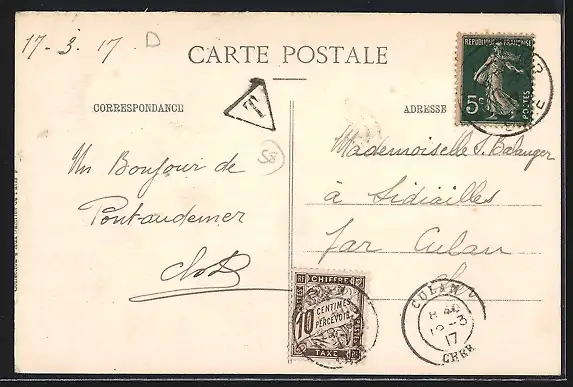 17-3.17. D
CARTE POSTALE
T
CORRESPONDANCE
ADRESSE
REPUBLIQUE FRANÇAISE
5c
POSTES
58
Un Bonjour de
Pontaudemer
Mademoiselle S. Balanger
à Sidiailles
par Culan
CHIFFRE
10
CENTIMES
A
PERCEVOIR
TAXE
CULAN
17
CHER